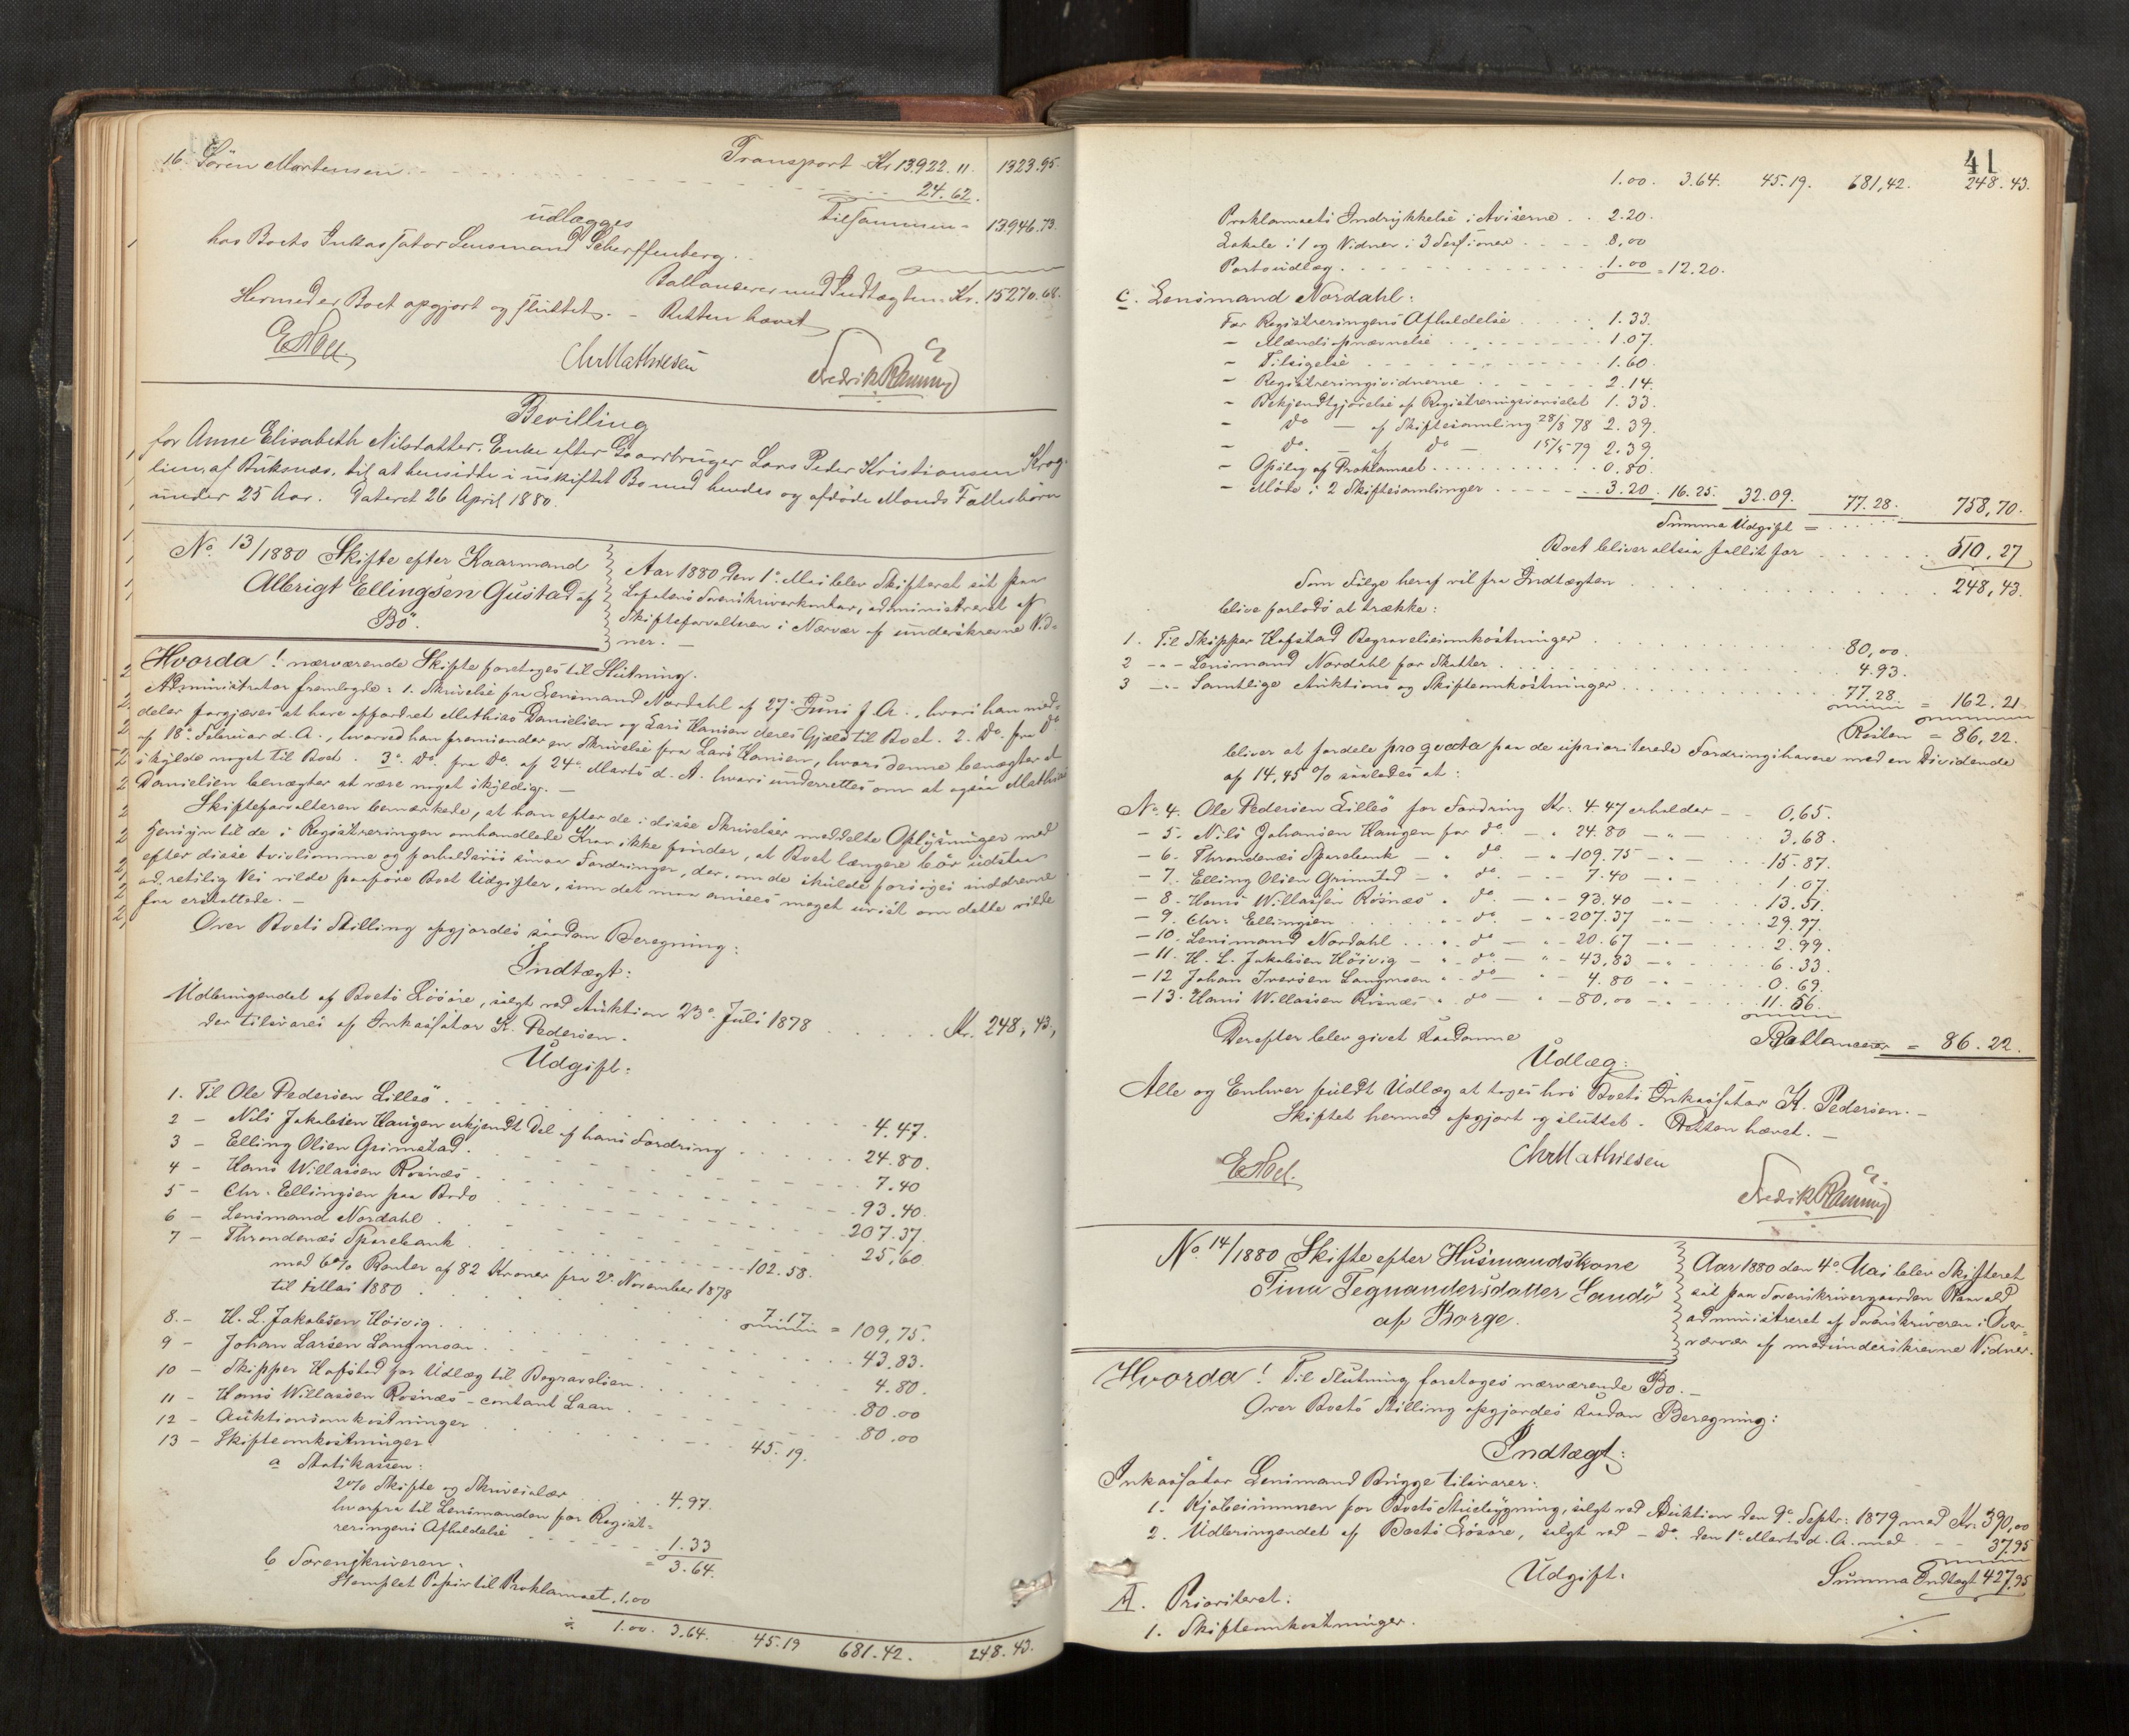 16. Sören Mortensen Transport Kr 13922.11 1323.95.
24.62.
udlægges tilsammen = 13946.73.
hos Boets Inkassator Lensmand Scherffenberg.
Ballancerer med Indtægten Kr. 15270.68.
Hermed er Boet opgjort og sluttet. – Retten hævet
ChrMathiesen
Bevilling
for Anne Elisabeth Nilsdatter, Enke efter Gaardbruger Lars Peder Kristiansen Krog-
lien, af Buksnæs, til at hensidde i uskiftet Bo med hendes og afdöde Mands Fællesbörn
under 25 Aar. Dateret 26 April 1880.
No. 13/1880 Skifte efter Kaarmand
Albrigt Ellingsen Gustad af
Bö.
Aar 1880 den 1e Mai blev Skifteret sat paa
Lofotens Sorenskriverkontor, administreret af
Skifteforvalteren i Nærvær af underskrevne Vid-
ner. –
Hvorda! nærværende Skifte foretoges til Slutning.
Administrator fremlagde: 1. Skrivelse fra Lensmand Nordahl af 27e Juni f. A., hvori han med-
deler forgjæves at have opfordret Mathias Danielsen og Lars Hansen deres Gjæld til Boet. 2. Do. fra Do
af 18e Februar d. A., hvorved han fremsender en Skrivelse fra Lars Hansen, hvori denne benægter at
skylde noget til Boet. 3e Do. fra Do. af 24e Marts d. A. hvori underrettes om at ogsaa Mathias
Danielsen benægter at være noget skyldig. –
Skifteforvalteren bemærkede, at han efter de i disse Skrivelser meddelte Oplysninger med
Hensyn til de i Registreringen omhandlede Krav ikke finder, at Boet længere bör udstaa
efter disse tvivlsomme og forholdsvis smaa Fordringer, der, om de skulde forsöges inddrevne
ad retslig Vei vilde paaföre Boet Udgifter, som det maa ansees meget uvist om dette vilde
faa erstattede. –
Over Boets Stilling opgjordes saadan Beregning:
Indtægt:
Udbringendet af Boets Lösöre, solgt ved Auktion 23e Juli 1878
der tilsvares af Inkassator K. Pedersen. Kr. 248,43,
Udgift:
1. Til Ole Pedersen Lilleö 4.47.
2 – Nils Jakobsen Haugen erkjendt Del af hans Fordring 24.80.
3 – Elling Olsen Grimstad. 7.40
4 – Hans Willassen Rösnæs 93.40.
5 – Chr. Ellingsen paa Bodø 207.37.
6 – Lensmand Nordahl 25,60
7 – Throndenæs Sparebank 102.58.
med 6% Renter af 82 Kroner fra 2e November 1878
til 1 Mai 1880 7.17. = 109,75.
8. – H. L. Jakobsen Höivig 43.83.
9 – Johan Larsen Langmoen 4.80.
10 – Skipper Hafstad for Udlæg til Begravelsen 80.00
11 – Hans Willassen Rösnæs – contant Laan 80.00
12 – Auktionsomkostninger 45.19.
13 – Skifteomkostninger
a Statskassen:
2% Skifte og Skriversalær 4.97.
hvorfra til Lensmanden for Regist-
reringens Afholdelse 1.33
= 3.64.
b Sorenskriveren:
Stemplet Papir til Proklamaet. 1.00
1.00. 3.64. 45.19 681.42. 248.43.
41
1.00. 3.64. 45.19. 681,42. 248.43.
Proklamaets Indrykkelse i Aviserne 2.20.
Lokale i 1 og Vidner i 3 Sessioner 8,00
Portoudlæg 1.00 = 12.20.
c. Lensmand Nordahl:
For Registreringens Afholdelse 1.33.
– Mændsopnævnelse 1.07.
– Tilsigelse 1.60.
– Registreringsvidnerne 2.14.
– Bekjendtgjörelse af Registreringsvarslet 1.33.
– do – af Skiftesamling 28/8 78 2.39.
– do. – af do – 15/5 79 2.39.
– Opslag af Proklamaet 0.80.
– Möde i 2 Skiftesamlinger 3.20. 16.25. 32.09. 77.28. 758,70.
Summa Udgift =
Boet bliver altsaa fallit for 510.27
Som Fölge heraf vil fra Indtægten 248,43.
blive forlods at trække:
1. Til Skipper Hafstad Begravelsesomkostninger 80,00.
2 –"– Lensmand Nordahl for Skatter 4.93.
3 –"– Samtlige Auktions og Skifteomkostninger 77.28. = 162.21
Resten = 86,22.
bliver at fordele pro qvota paa de uprioriterede Fordringshavere med en Dividende
af 14,45 % saaledes at:
No. 4. Ole Pedersen Lilleö for Fordring Kr. 4.47 erholder 0,65.
– 5. Nils Johansen Haugen for do. – " 24.80 – " – 3.68.
– 6. Throndenæs Sparebank – " do. – " 109.75 – " – 15.87.
– 7. Elling Olsen Grimstad – " do. – " 7.40 – " – 1.07.
– 8. Hans Willassen Rösnæs " do – " 93.40 – " – 13.51.
– 9. Chr. Ellingsen " do. – " 207.37 – " – 29.97.
– 10. Lensmand Nordahl " do – " 20.67 – " – 2.99.
– 11. H. L. Jakobsen Höivig – " do. – " 43,83 – " 6.33.
– 12 Johan Iversen Langmoen " do – " 4.80 – " 0.69.
– 13. Hans Willassen Rösnæs " do – " 80,00 – " 11.56.
Ballancerer = 86.22.
Derefter blev givet saadanne
Udlæg:
Alle og Enhver fuldt Udlæg at tages hos Boets Inkassator K. Pedersen. –
Skiftet hermed opgjort og sluttet. Retten hævet. –
ChrMathiesen
No. 14/1880 Skifte efter Husmandskone
Tina Tegnandersdatter Sandö
af Borge.
Aar 1880 den 4e Mai blev Skifteret
sat paa Sorenskrivergaarden
administreret af Sorenskriveren i Over-
værvær af medunderskrevne Vidner.
Hvorda! Til Slutning foretoges nærværende Bo. –
Over Boets Stilling opgjordes saadan Beregning:
Indtægt:
Inkassator Lensmand Bugge tilsvarer:
1. Kjöbesummen for Boets Stuebygning, solgt ved Auktion den 9e Septr: 1879 med Kr. 390,00
2. Udbringendet af Boets Lösöre, solgt ved – do. den 1e Marts d. A. med 37.95
Summa Indtægt 427,95
Udgift:
A. Prioriteret:
1. Skifteomkostninger.